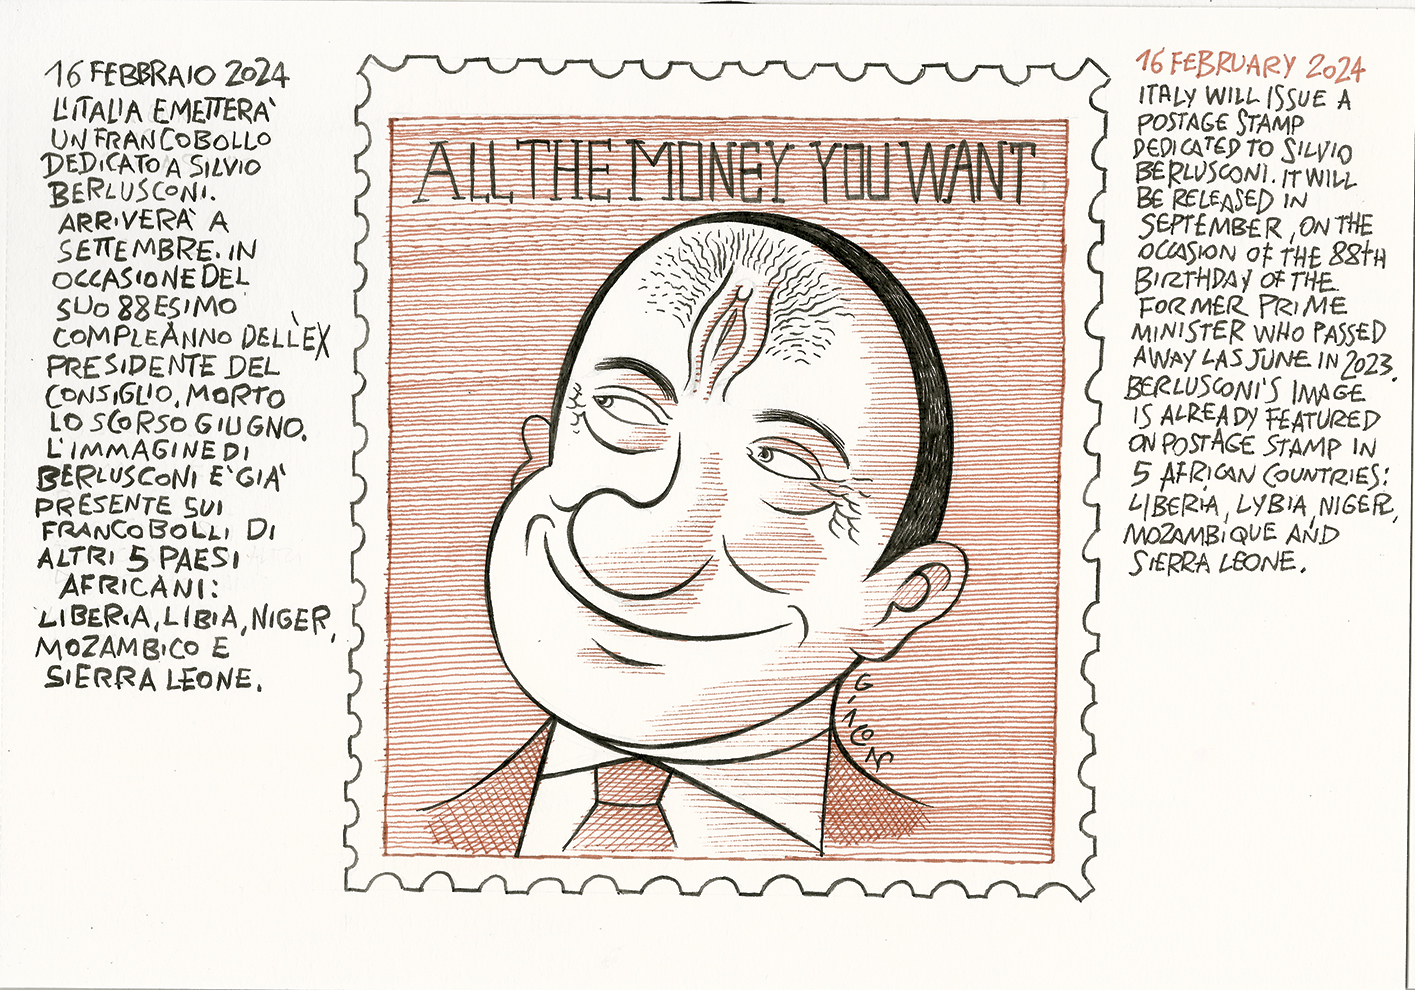 16 FEBBRAIO 2024
L'ITALIA EMETTERA'
UN FRANCOBOLLO
DEDICATO A SILVIO
BERLUSCONI.
ARRIVERA' A
SETTEMBRE. IN
OCCASIONE DEL
SUO 88ESIMO
COMPLEANNO DELL'EX
PRESIDENTE DEL
CONSIGLIO, MORTO
LO SCORSO GIUGNO.
L'IMMAGINE DI
BERLUSCONI E' GIA'
PRESENTE SUI
FRANCOBOLLI DI
ALTRI 5 PAESI
AFRICANI:
LIBERIA, LIBIA, NIGER,
MOZAMBICO E
SIERRA LEONE.
ALL THE MONEY YOU WANT
16 FEBRUARY 2024
ITALY WILL ISSUE A
POSTAGE STAMP
DEDICATED TO SILVIO
BERLUSCONI. IT WILL
BE RELEASED IN
SEPTEMBER, ON THE
OCCASION OF THE 88tH
BIRTHDAY OF THE
FORMER PRIME
MINISTER WHO PASSED
AWAY LAS JUNE IN 2023.
BERLUSCONI'S IMAGE
IS ALREADY FEATURED
ON POSTAGE STAMP IN
5 AFRICAN COUNTRIES:
LIBERIA, LYBIA, NIGER,
MOZAMBIQUE AND
SIERRA LEONE.